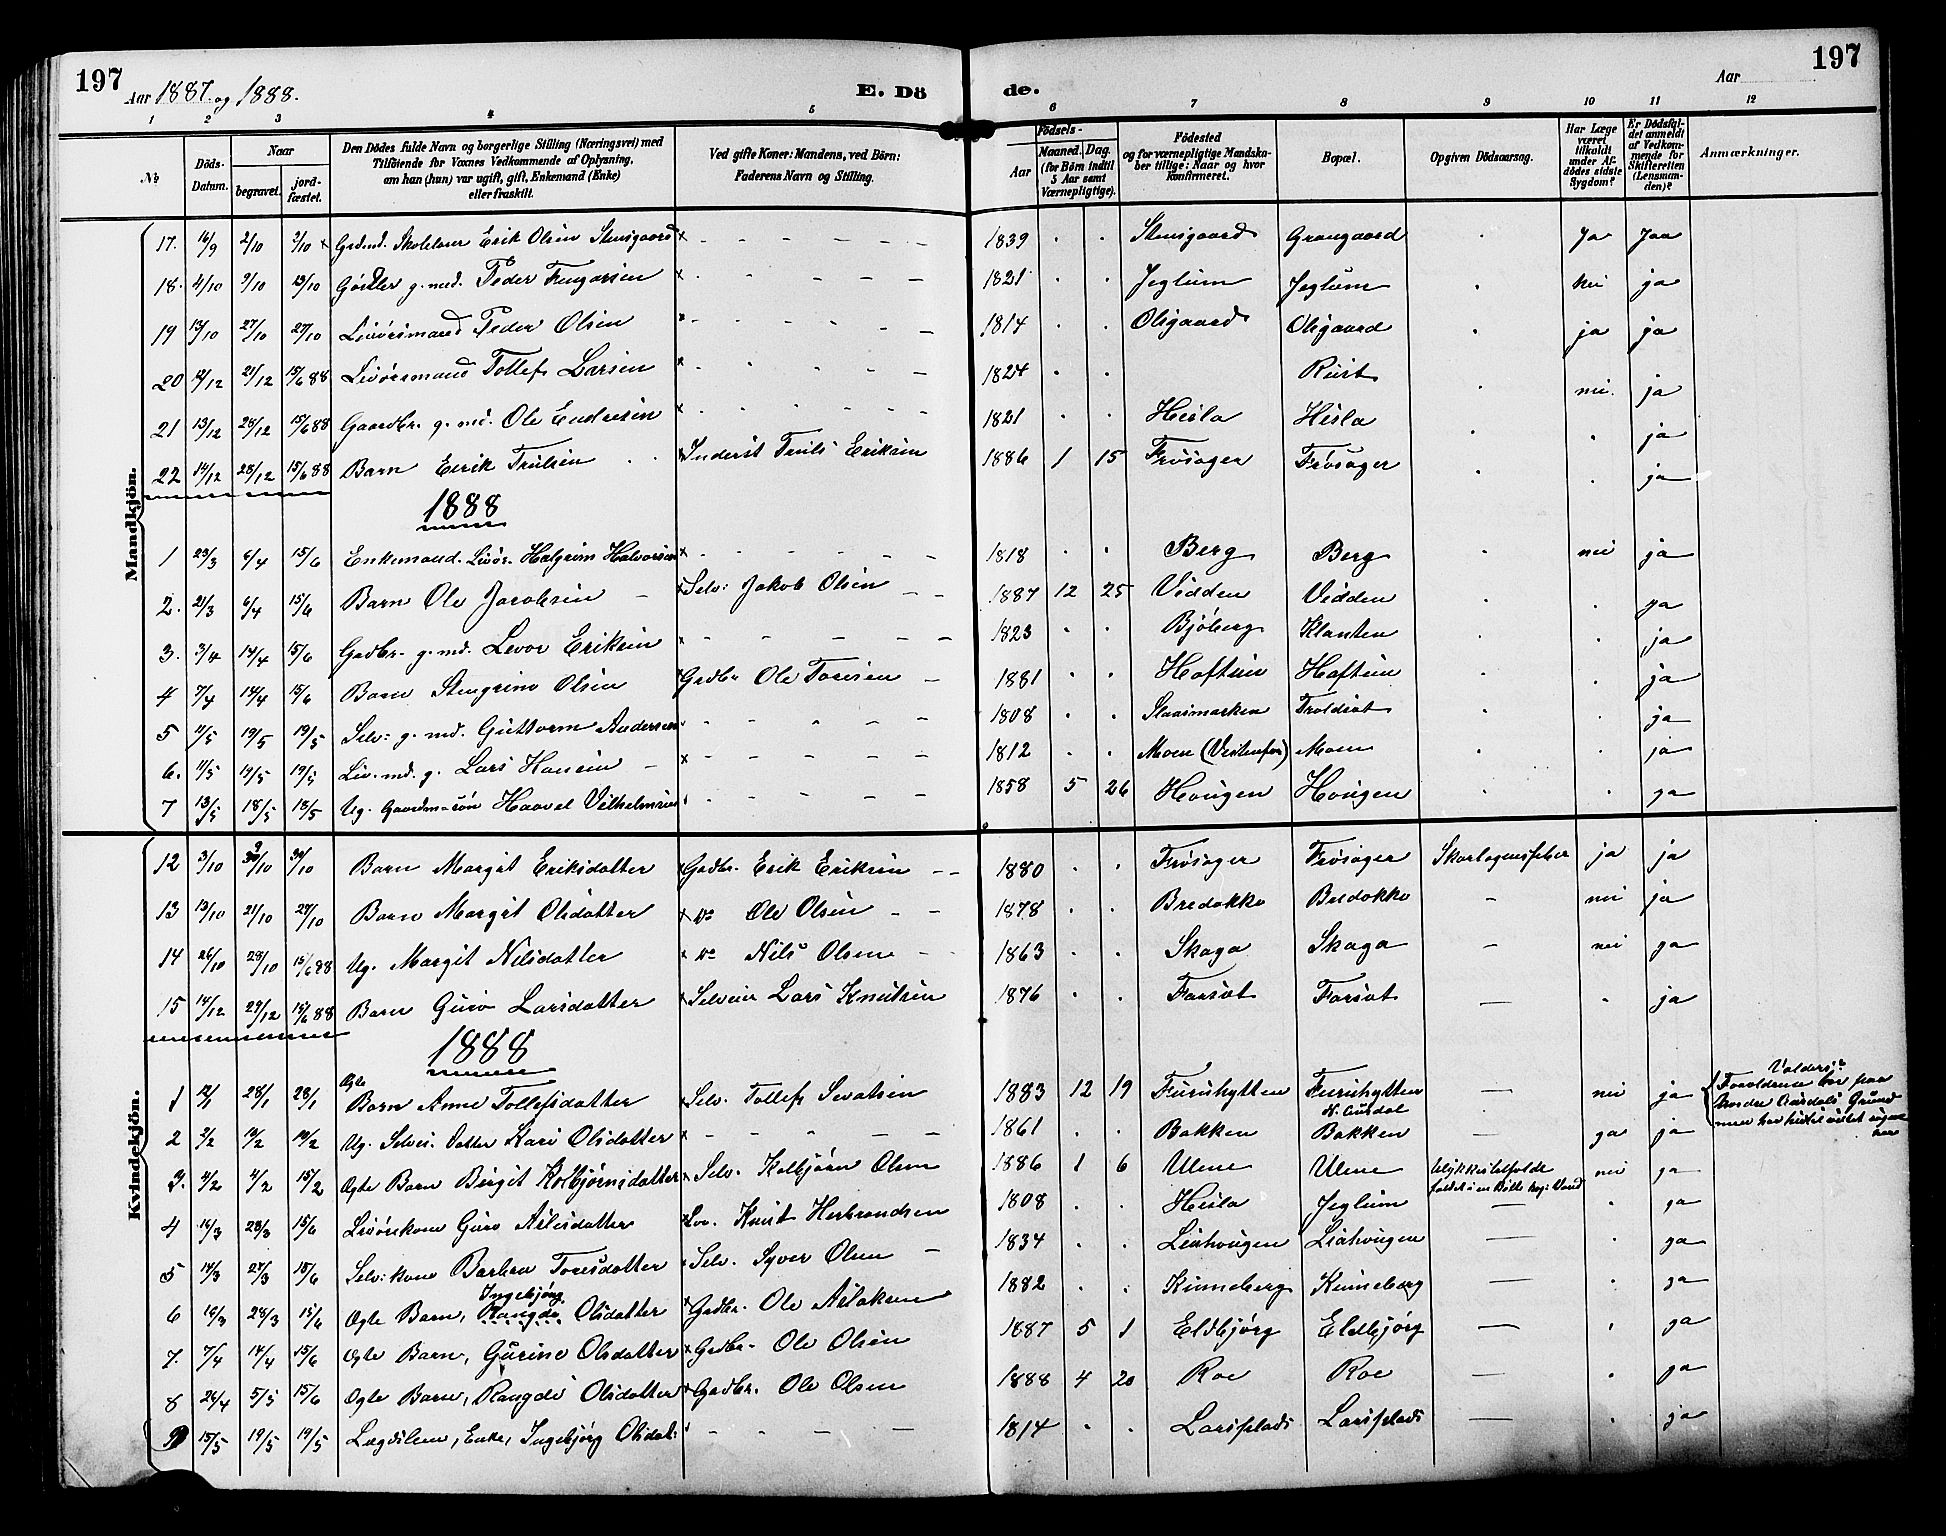 197
Aar 1887 og 1888.
E. Dö
de.
Aar
197
1 2 3 4 5 6 7 8 9 10 11 12
No
Döds-Datum.
Naar
begravet.
jord-fæstet.
Den Dödes fulde Navn og borgerlige Stilling (Næringsvei) med
Tilföiende for Voxnes Vedkommende af Oplysning,
om han (hun) var ugift, gift, Enkemand (Enke)
eller fraskilt.
Ved gifte Koner: Mandens, ved Börn:
Faderens Navn og Stilling.
Födsels-
Aar
Maaned. Dag.
(for Børn indtil
5 Aar samt
Værnepligtige).
Födested
og for værnepligtige Mandska-
ber tillige: Naar og hvor
konfirmeret.
Bopæl.
Opgiven Dödsaarsag.
Har Læge
været
tilkaldt
under Af-
dödes sidste
Sygdom?
Er Dödsfal-
det anmeldt
af Vedkom-
mende for
Skifteretten
(Lensman-
den)?
Anmærkninger.
Mandkjön.
17. 16/9 2/10 2/10 Grdmd. Skolelærer Erik Olsen Stensgaard 1839 Stensgaard Grangaard Ja Jaa
18. 4/10 9/10 13/10 g. md. Peder Fingarsen 1821 Jeglum Jeglum nei ja
19 13/10 27/10 27/10 Livörsmand Peder Olsen 1814 Olsgaard Olsgaard ja ja
20 12/12 21/12 15/6 88 Livörsmand Tollef Larsen 1824 Rust nei. ja
21 13/12 28/12 15/6 88 Gaardbr. g. md. Ole Endresen 1821 Hesla Hesla ja
22 14/12 28/12 15/6 88 Barn Eerik Trulsen Inderst Truls Eriksen 1886 1 15 Frösager Frösager ja
1888
1 23/3 6/4 15/6 Enkemand. Livör. Halgrim Halvorsen 1818 Berg Berg nei ja
2. 21/3 6/4 15/6 Barn Ole Jacobsen Selv: Jakob Olsen 1887 12 25 Vidden Vidden ja
3. 3/4 14/4 15/6 Grdbr. g. md. Levor Eriksen 1823 Bjöberg Klanten ja
4 7/4 14/4 15/6 Barn Stengrim Olsen Grdbr Ole Toresen 1881 Haftun Haftun ja
5 11/5 19/5 19/5 Selv: g. md. Guttorm Andersen 1808 Slaaimarken Troldset ja
6. 11/5 19/5 19/5 Liv. md. g. Lars Hansen 1812 Moen Moen ja
7 13/5 18/5 18/5 Ug. Gaardm. sön Haavel Vilhelmsen 1858 5 26 Hougen Hougen ja
Kvindekjön.
12 3/10 30/10 30/10 Barn Margit Eriksdatter Grdbr. Erik Eriksen 1880 Frösager Frösager Skarlagensfeber ja ja
13 13/10 21/10 27/10 Barn Margit Olsdatter Do Ole Olsen 1878 Bredokko Bredokko nei ja
14 26/10 29/10 15/6 88 Ug. Margit Nilsdatter Do Nils Olsen 1863 Skaga Skaga nei ja
15 14/12 29/12 15/6 88 Barn Guro Larsdatter Selveier Lars Knutsen 1876 Farsæt Farsæt ja
1888
1 12/1 28/1 28/1 Ægte Barn Anne Tollefsdatter Selv. Tollef Sevatsen 1883 12 19 Furuhytten Furuhytten nei ja
Valders?
Foreldrene bor paa
Nordre Aurdals Grund
men har
2 2/2 19/2 19/2 Ug. Selvei. Datter Kari Olsdatter 1861 Bakken Bakken ja ja
3. 4/2 4/2 15/2 Ægte Barn Birgit Kolbjörnsdatter Selv. Kolbjörn Olsen 1886 1 6 Ulene Ulene Ulykkestilfælde faldt i en Bötte kog: Vand nei ja
4 16/3 23/3 15/6 Livörskone Guro Aslesdatter Lvr. Knut Herbrandsen 1808 Hesla Jeglum ja
5 14/3 27/3 15/6 Selv: kone Barbra Toresdatter Selv. Syver Olsen 1834 Liahougen Liahougen ja
6 16/3 28/3 15/6 Ægte Barn, Rangdi Ingebjörg Olsdatter Grdbr. Ole Aslaksen 1882 Kinneberg Kinneberg ja
7. 7/4 14/4 15/6 Ægte Barn, Gurine Olsdatter Grdbr. Ole Olsen 1887 5 1 Eldbjörg Eldbjörg ja
8 26/4 5/5 15/6 Ægte Barn, Rangdi Olsdatter Grdbr. Ole Olsen 1888 4 20 Roe Roe ja
9 15/5 19/5 19/5 Lægdslem, Enke, Ingebjörg Olsdat: 1814 Larsplads Larsplads ja